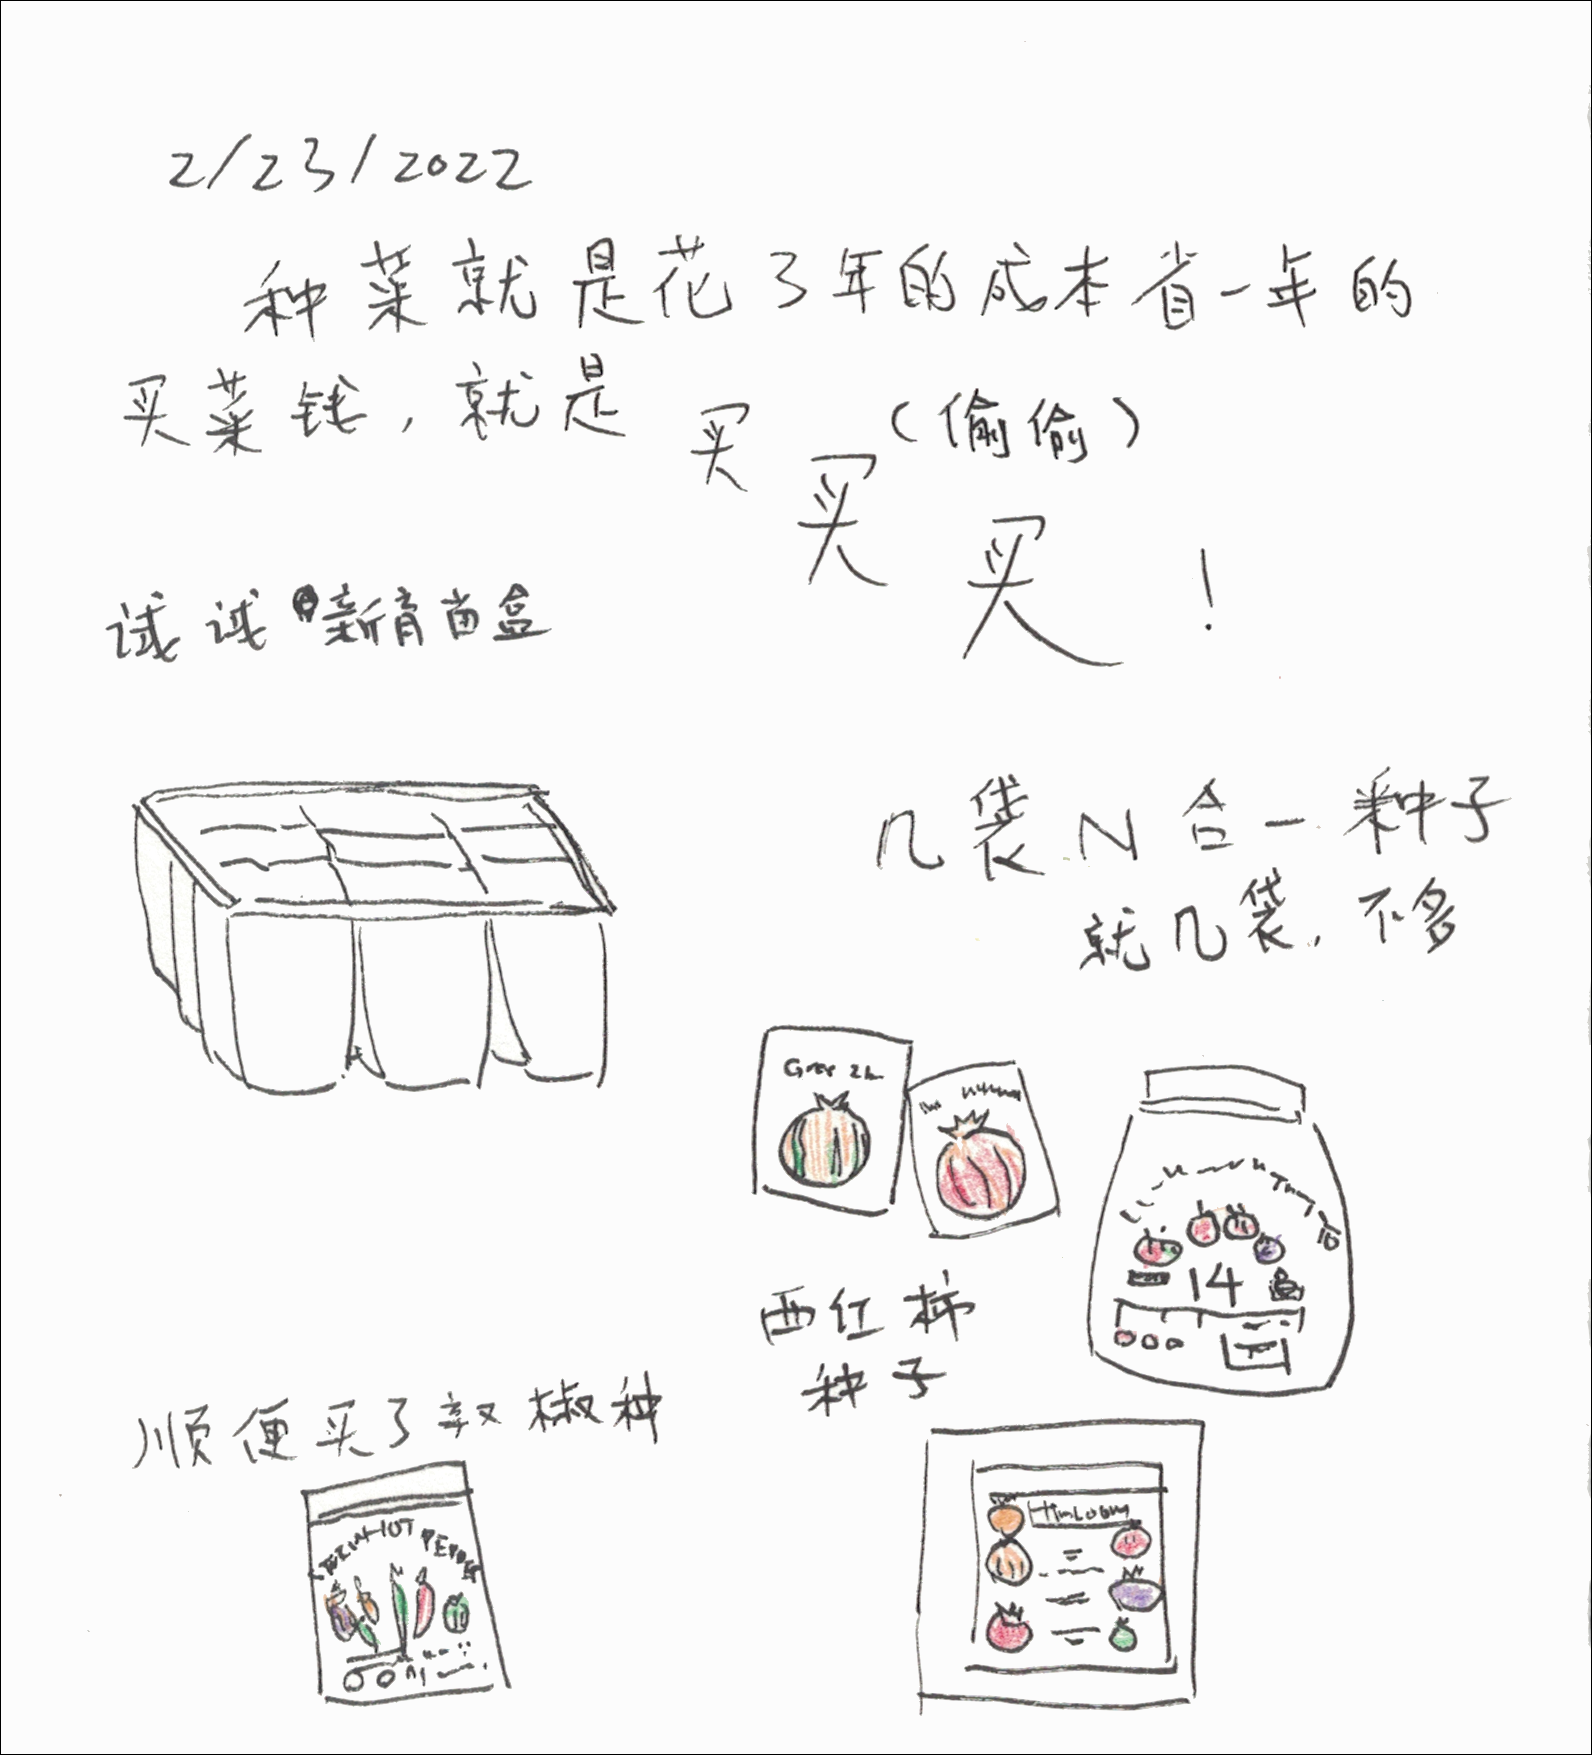 2/23/2022
种菜就是花3年的成本省一年的
买菜钱,就是买买买!
(偷偷)
试试新育苗盒
几袋N合一种子
就几袋,不多
西红柿
种子
14
顺便买了辣椒种
HOT PEPPER